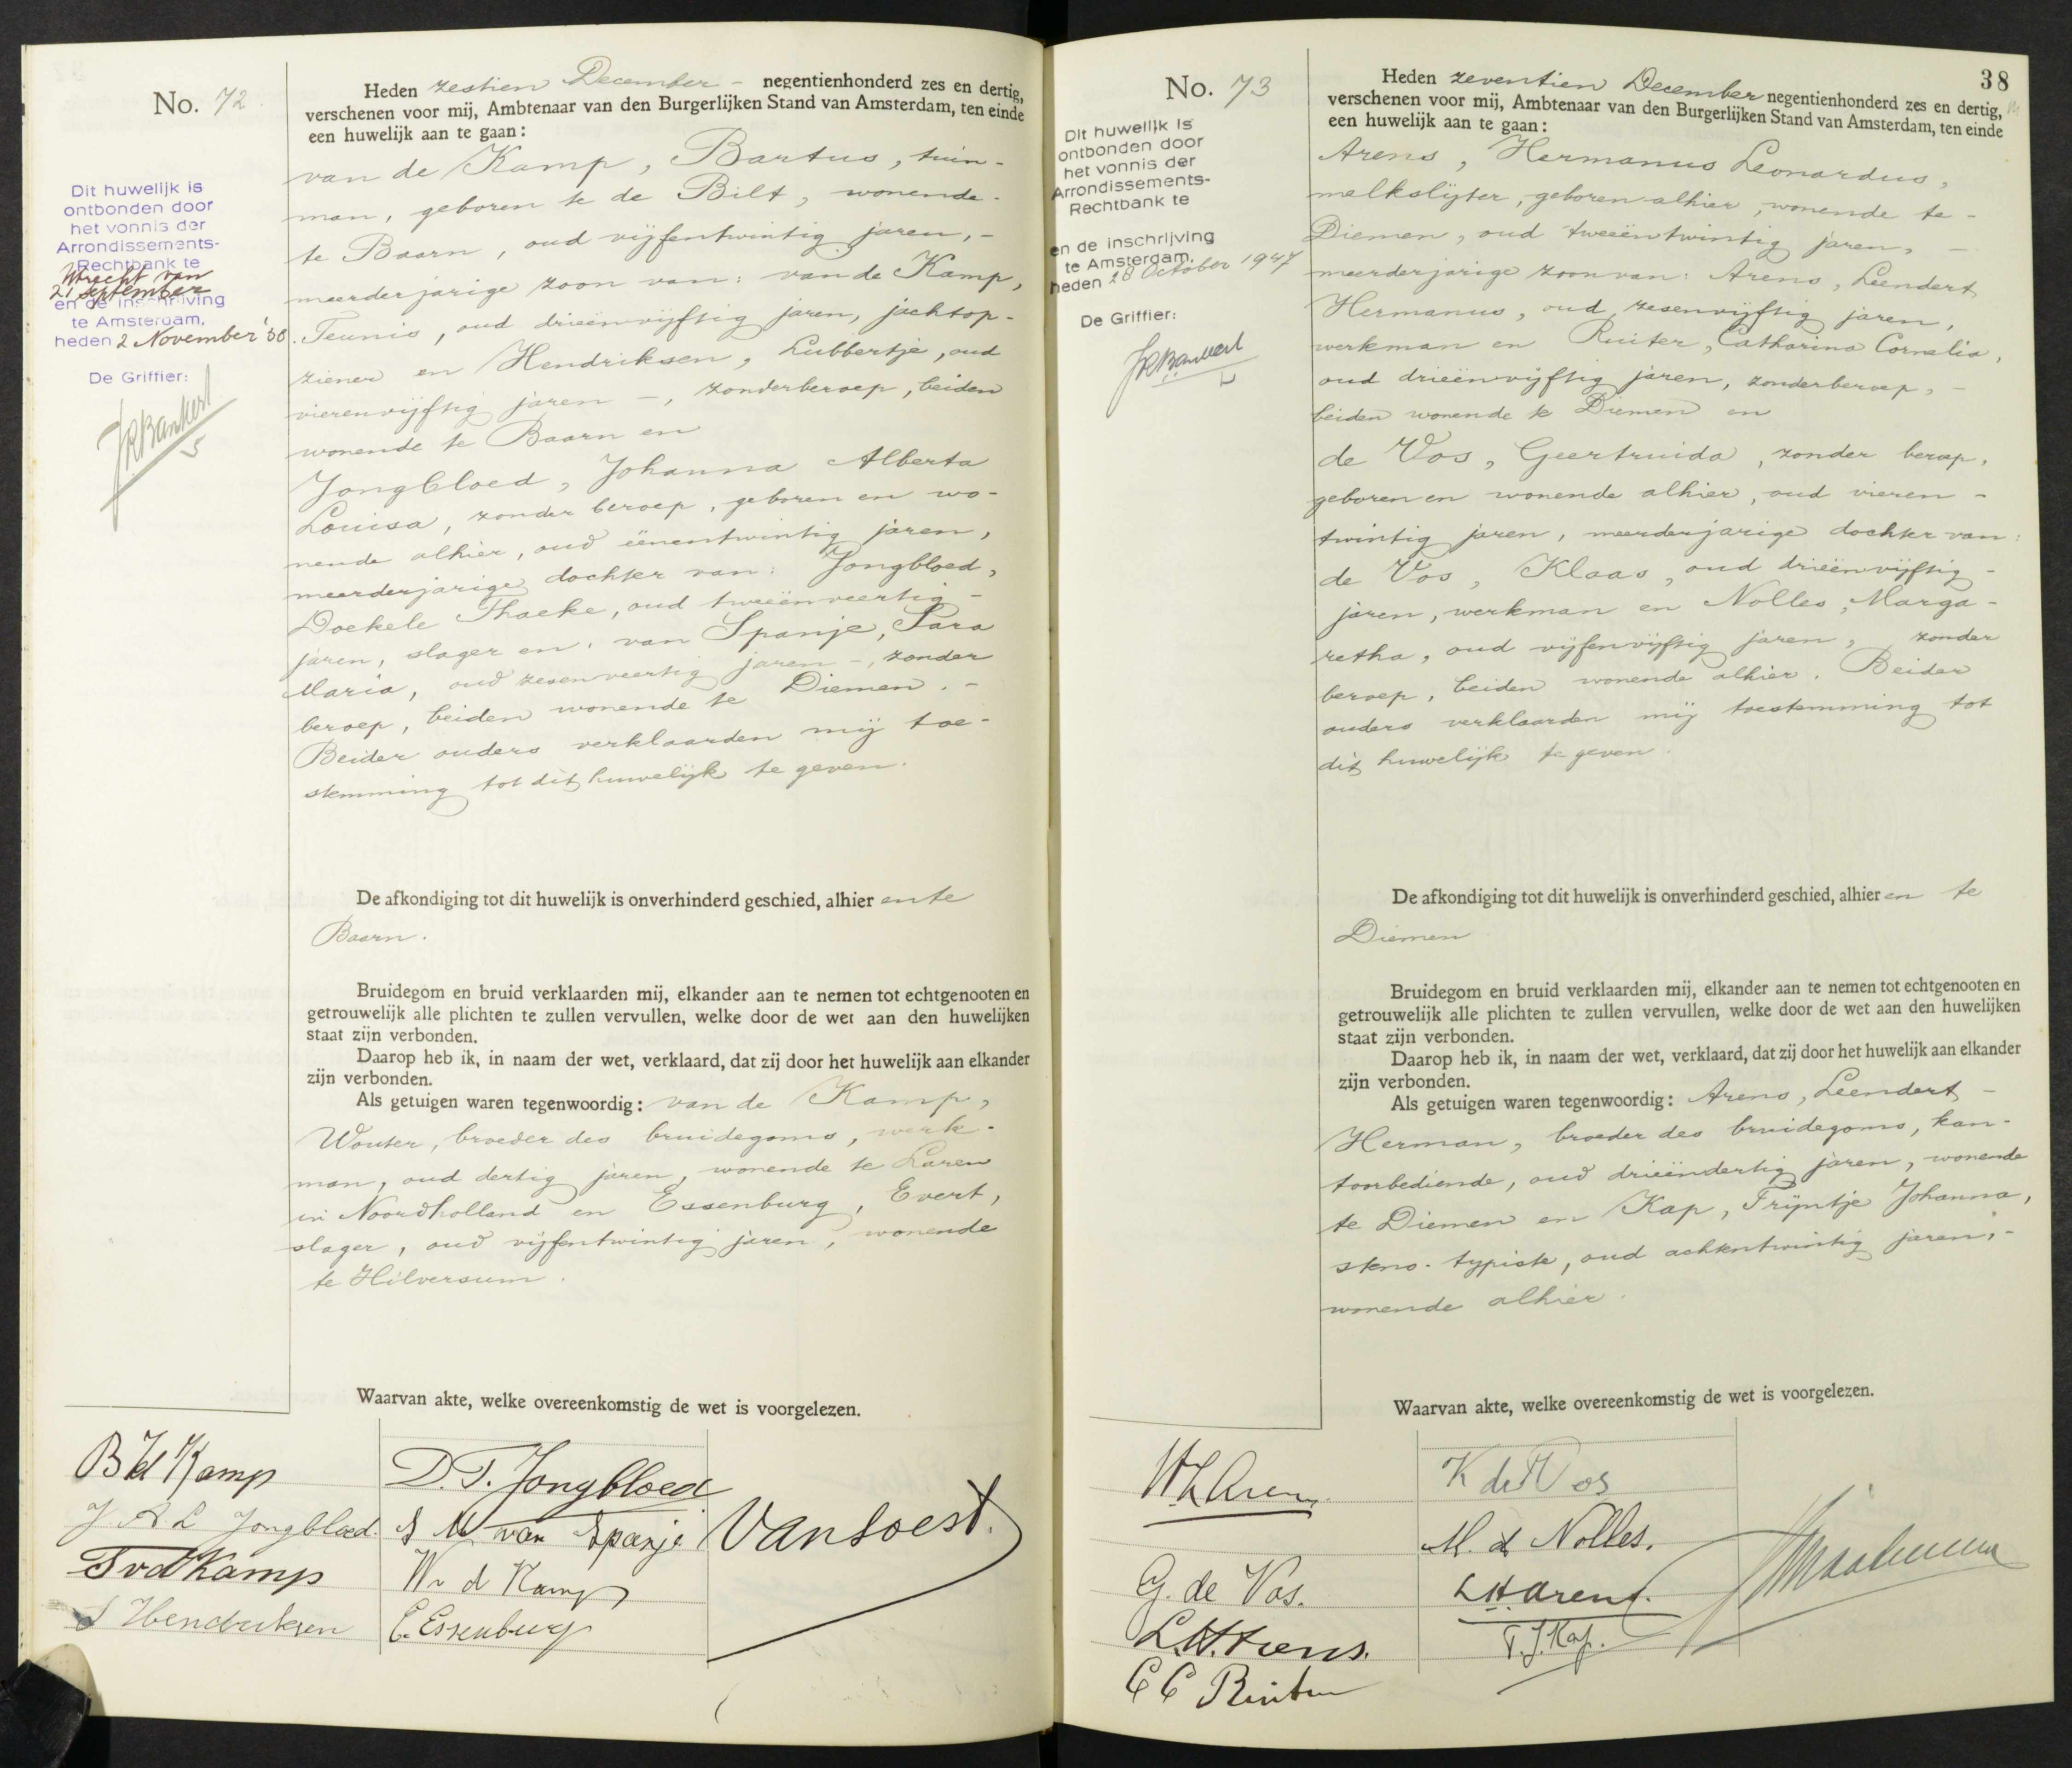 No. 72
Dit huwelijk is
ontbonden door
het vonnis der
Arrondissements-
Rechtbank te
Utrecht van
21 September
en de inschrijving
te Amsterdam,
heden 2 November '38.
De Griffier:
Heden zestien December - negentienhonderd zes en dertig,
verschenen voor mij, Ambtenaar van den Burgerlijken Stand van Amsterdam, ten einde
een huwelijk aan te gaan:
van de Kamp, Bartus, tuin-
man, geboren te de Bilt, wonende-
te Baarn, oud vijfentwintig jaren, -
meerderjarige zoon van: van de Kamp,
Teunis, oud drieënvijftig jaren, jachtop-
ziener en Hendriksen, Lubbertje, oud
vierenvijftig jaren -, zonder beroep, beiden
wonende te Baarn en
Jongbloed, Johanna Alberta
Louisa, zonder beroep, geboren en wo-
nende alhier, oud éénentwintig jaren,
meerderjarige dochter van: Jongbloed,
Doekele Thaeke, oud tweeënveertig -
jaren, slager en, van Spanje, Sara
Maria, oud zesenveertig jaren -, zonder
beroep, beiden wonende te Diemen. -
Beider ouders verklaarden mij toe-
stemming tot dit huwelijk te geven.
De afkondiging tot dit huwelijk is onverhinderd geschied, alhier en te
Baarn.
Bruidegom en bruid verklaarden mij, elkander aan te nemen tot echtgenooten en
getrouwelijk alle plichten te zullen vervullen, welke door de wet aan den huwelijken
staat zijn verbonden.
Daarop heb ik, in naam der wet, verklaard, dat zij door het huwelijk aan elkander
zijn verbonden.
Als getuigen waren tegenwoordig: van de Kamp,
Wouter, broeder des bruidegoms, werk-
man, oud dertig jaren, wonende te Laren
in Noordholland en Essenburg, Evert,
slager, oud vijfentwintig jaren, wonende
te Hilversum.
Waarvan akte, welke overeenkomstig de wet is voorgelezen.
B vd Kamp
J A L Jongbloed.
T vd Kamp
L Hendriksen
D. T. Jongbloed
S M van Spanje
W v d Kamp
E. Essenburg
Van Soest.
38
No. 73
Dit huwelijk is
ontbonden door
het vonnis der
Arrondissements-
Rechtbank te
en de inschrijving
te Amsterdam,
heden 28 October 1947
De Griffier:
Heden zeventien December negentienhonderd zes en dertig,
verschenen voor mij, Ambtenaar van den Burgerlijken Stand van Amsterdam, ten einde
een huwelijk aan te gaan:
Arens, Hermanus Leonardus,
melkslijter, geboren alhier, wonende te -
Diemen, oud tweeëntwintig jaren, -
meerderjarige zoon van: Arens, Leendert
Hermanus, oud zesenvijftig jaren,
werkman en Ruiter, Catharina Cornelia,
oud drieënvijftig jaren, zonder beroep, -
beiden wonende te Diemen en
de Vos, Geertruida, zonder beroep,
geboren en wonende alhier, oud vieren -
twintig jaren, meerderjarige dochter van:
de Vos, Klaas, oud drieënvijftig -
jaren, werkman en Nolles, Marga-
retha, oud vijfenvijftig jaren, zonder
beroep, beiden wonende alhier. Beider
ouders verklaarden mij toestemming tot
dit huwelijk te geven.
De afkondiging tot dit huwelijk is onverhinderd geschied, alhier en te
Diemen
Bruidegom en bruid verklaarden mij, elkander aan te nemen tot echtgenooten en
getrouwelijk alle plichten te zullen vervullen, welke door de wet aan den huwelijken
staat zijn verbonden.
Daarop heb ik, in naam der wet, verklaard, dat zij door het huwelijk aan elkander
zijn verbonden.
Als getuigen waren tegenwoordig: Arens, Leendert -
Herman, broeder des bruidegoms, kan-
toorbediende, oud drieëndertig jaren, wonende
te Diemen en Kap, Trijntje Johanna,
steno-typiste, oud achtentwintig jaren, -
wonende alhier.
Waarvan akte, welke overeenkomstig de wet is voorgelezen.
H L Arens
G. de Vos.
L. H. Arens.
C C Ruiter
K de Vos
M. d Nolles.
L H Arens.
T. J. Kap.